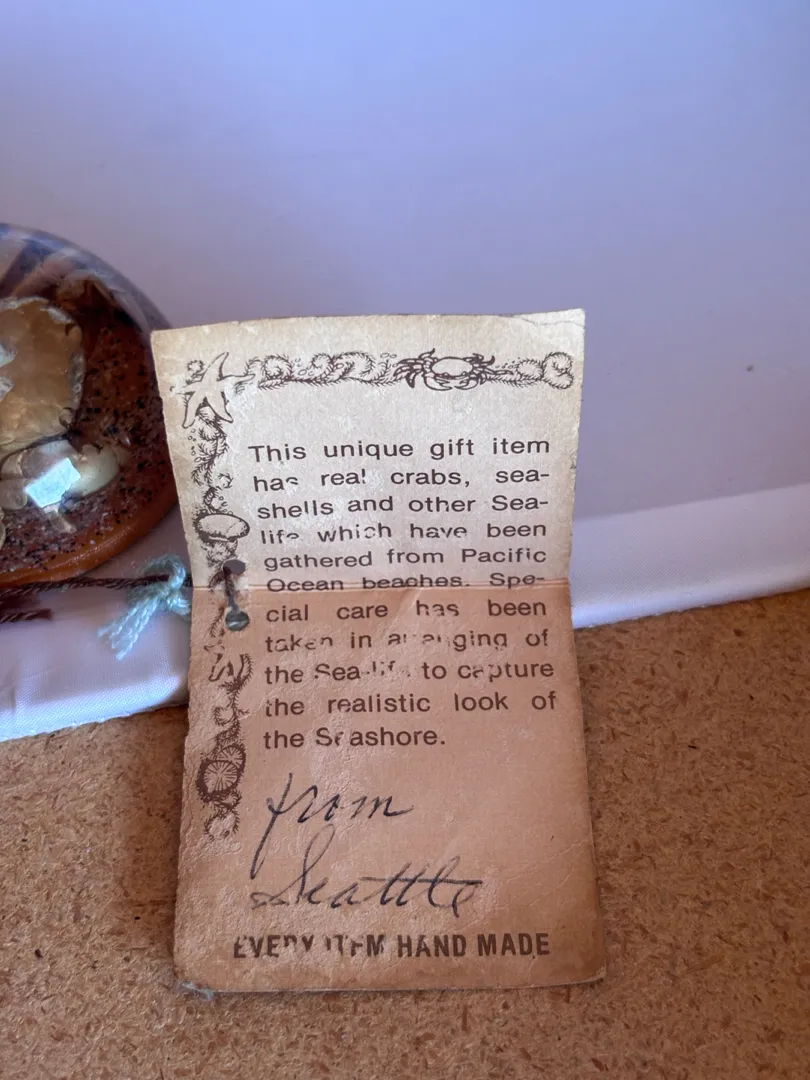 This unique gift item
has real crabs, sea-
shells and other Sea-
life which have been
gathered from Pacific
Ocean beaches. Spe-
cial care has been
taken in arranging of
the Sea-life to capture
the realistic look of
the Seashore.
from
Seattle
EVERY ITEM HAND MADE